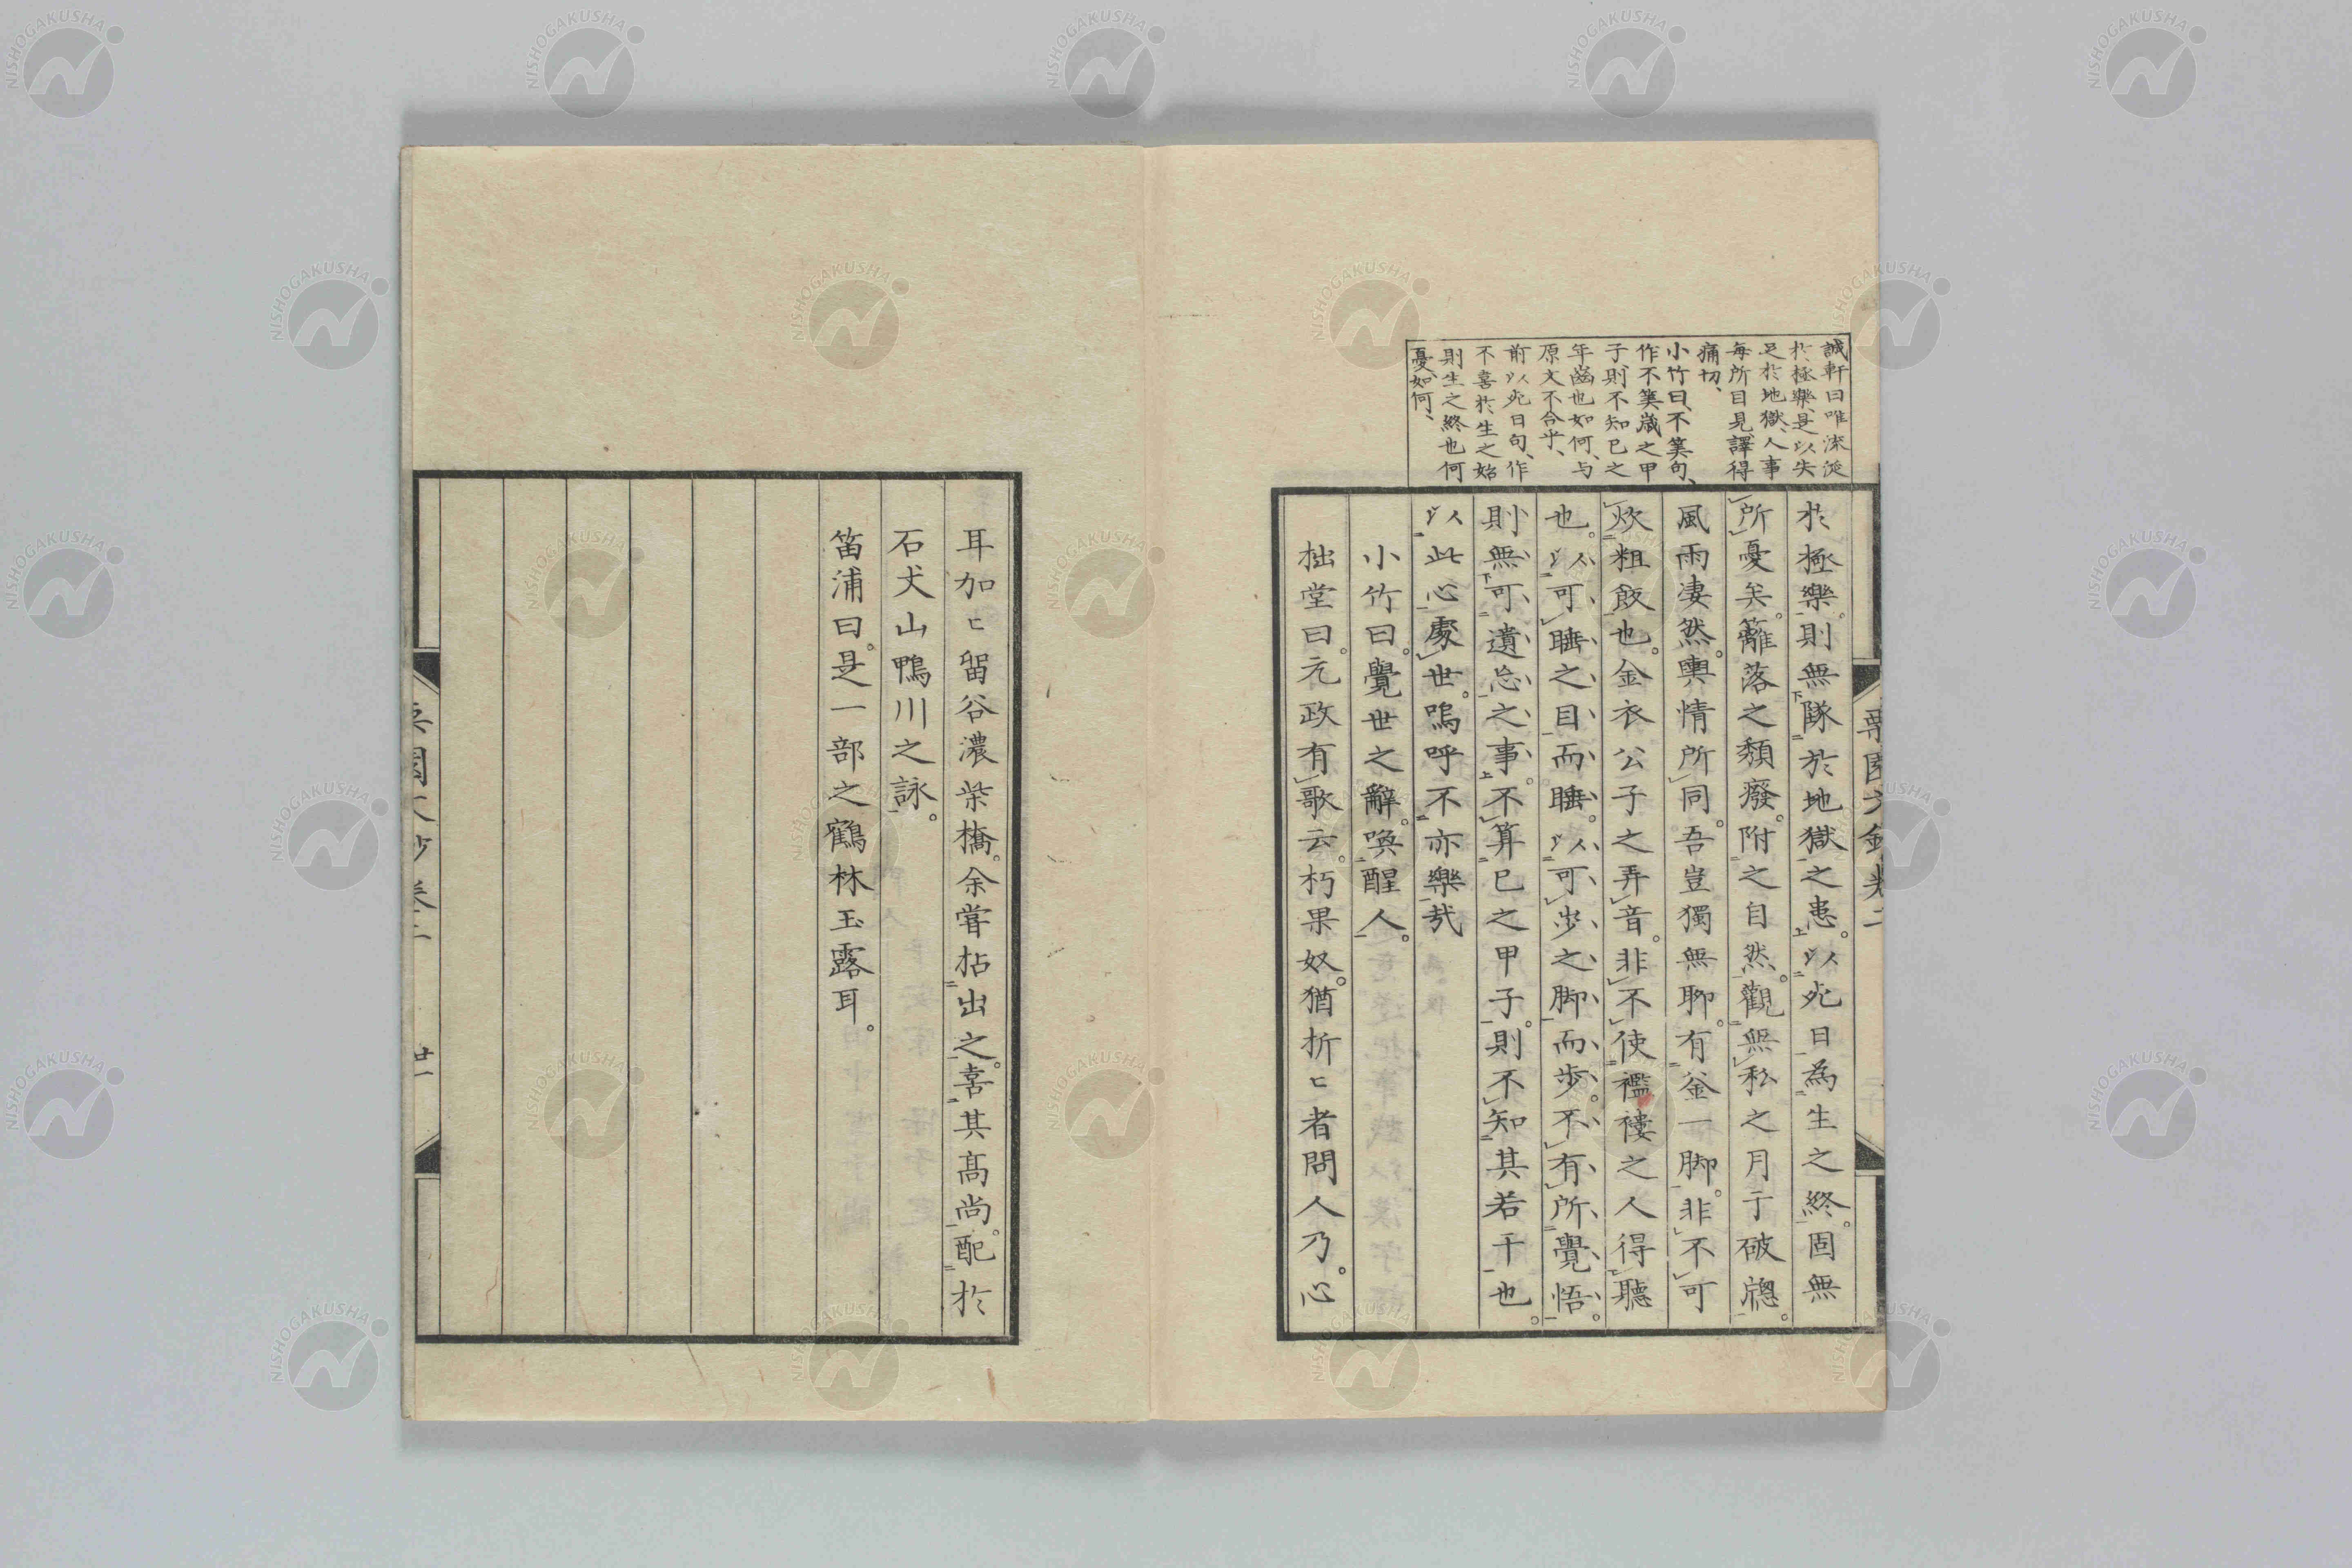 誠軒曰唯深泥
於極樂、是以失
足於地獄、人事
每所目見、譯得
痛切、
小竹曰、不筭句、
作不筭歲之甲
子、則不知已之
年齒也如何、与
原文不合乎、
前以死日句、作
不喜於生之始
則生之終也何
憂、如何、
於極樂。則無隊於地獄之患。以死日為生之終。固無
所憂矣。籬落之頽癈。附之自然。觀無私之月于破牕。
風雨凄然。輿情所同。吾豈獨無聊。有釜一脚。非不可
炊粗飯也。金衣公子之弄音。非不使襤褸之人得聽
也。以可睡之目而睡。以可步之脚而步。不有所覺悟。
則無可遺忘之事。不算已之甲子。則不知其若干也。
以此心處世。嗚呼不亦樂哉
小竹曰。覺世之辭。喚醒人。
拙堂曰。元政有歌云。朽果奴。猶折〻者問人乃。心
耳加〻留谷濃柴橋。余嘗拈出之。喜其高尚。配於
石犬山鴨川之詠。
笛浦曰。是一部之鶴林玉露耳。
卷二
廿一